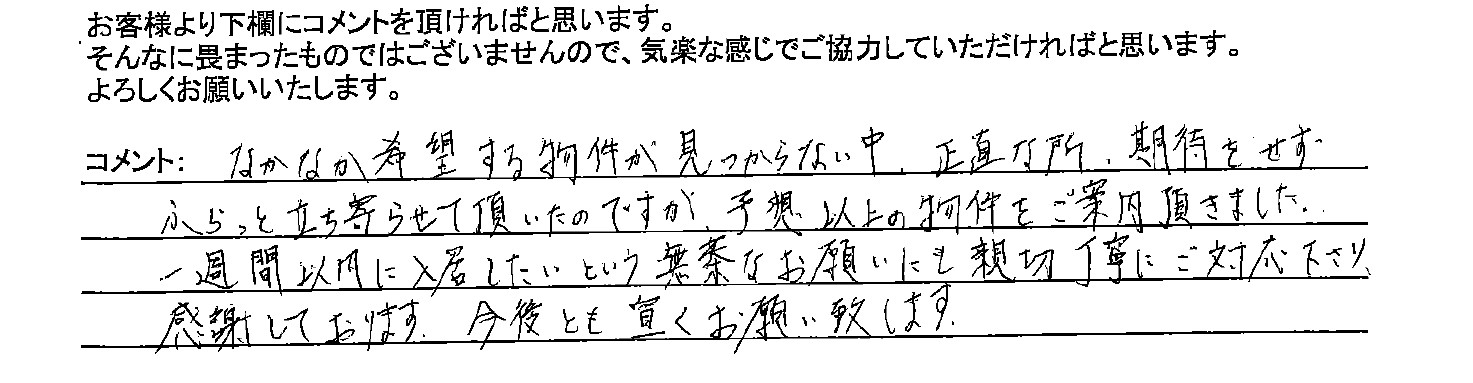 お客様より下欄にコメントを頂ければと思います。
そんなに畏まったものではございませんので、気楽な感じでご協力していただければと思います。
よろしくお願いいたします。
コメント: なかなか希望する物件が見つからない中、正直な所、期待をせず
ふらっと立ち寄らせて頂いたのですが、予想以上の物件をご案内頂きました。
一週間以内に入居したいという無茶なお願いにも親切丁寧にご対応下さり、
感謝しております。今後とも宜くお願い致します。